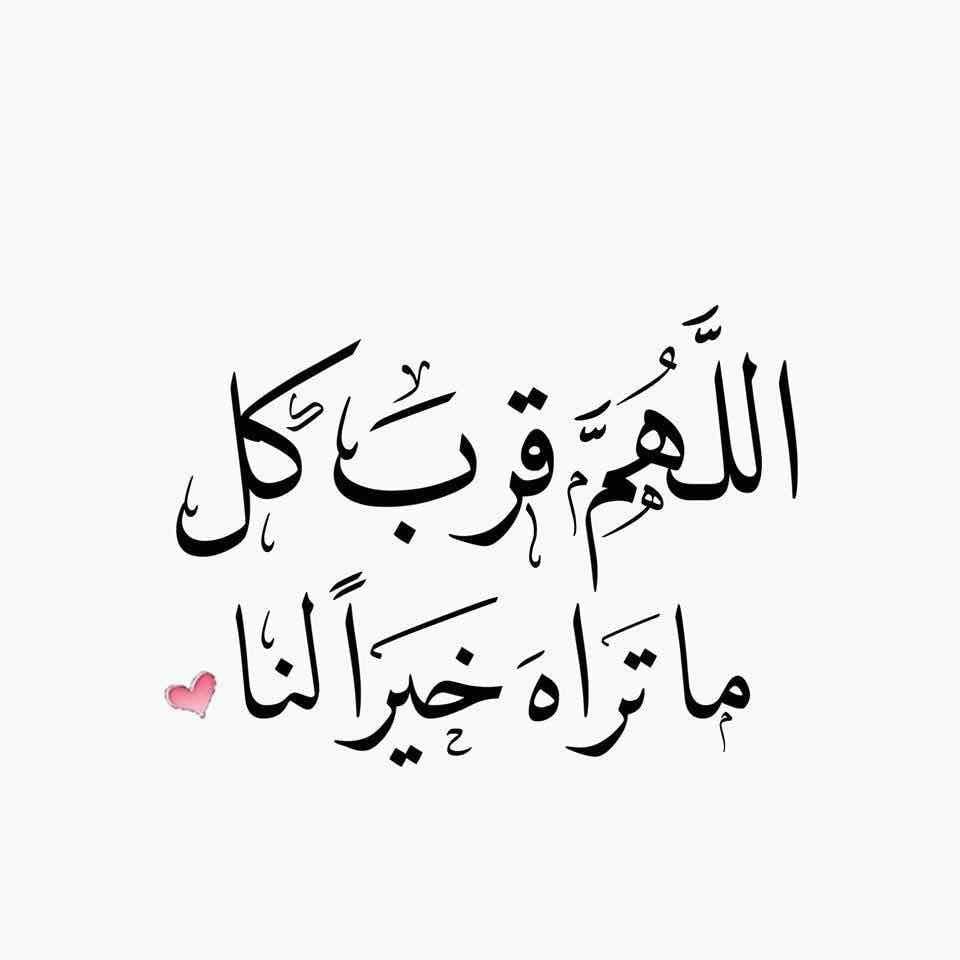 اللَّهُمَّ قرب كل
ما تَراهَ خيَراً لنا